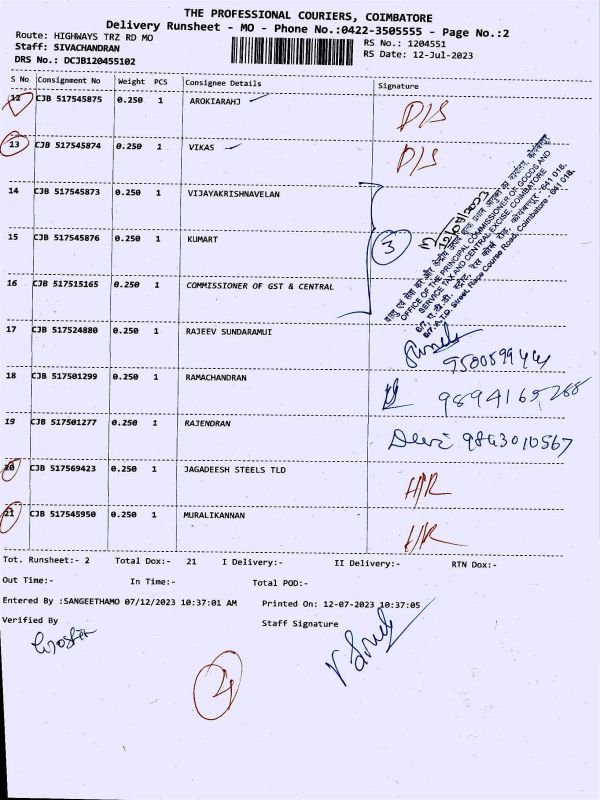 THE PROFESSIONAL COURIERS, COIMBATORE
Delivery Runsheet - MO - Phone No.:0422-3505555 - Page No.:2
Route: HIGHWAYS TRZ RD MO
RS No.: 1204551
Staff: SIVACHANDRAN
RS Date: 12-Jul-2023
DRS No.: DCJB120455102
S No Consignment No Weight PCS Consignee Details Signature
12 CJB 517545875 0.250 1 AROKIARAHJ D/S
13 CJB 517545874 0.250 1 VIKAS D/S
14 CJB 517545873 0.250 1 VIJAYAKRISHNAVELAN
15 CJB 517545876 0.250 1 KUMART
3
16 CJB 517515165 0.250 1 COMMISSIONER OF GST & CENTRAL
OFFICE OF THE PRINCIPAL COMMISSIONER OF GOODS AND
SERVICE TAX AND CENTRAL EXCISE, COIMBATORE
6/7, A.T.D. Street, Race Course Road, Coimbatore - 641 018.
17 CJB 517524880 0.250 1 RAJEEV SUNDARAMUI
18 CJB 517501299 0.250 1 RAMACHANDRAN 9894165268
19 CJB 517501277 0.250 1 RAJENDRAN Devi 9843010567
20 CJB 517569423 0.250 1 JAGADEESH STEELS TLD H/R
21 CJB 517545950 0.250 1 MURALIKANNAN H/R
Tot. Runsheet:- 2 Total Dox:- 21 I Delivery:- II Delivery:- RTN Dox:-
Out Time:- In Time:- Total POD:-
Entered By :SANGEETHAMO 07/12/2023 10:37:01 AM Printed On: 12-07-2023 10:37:05
Verified By Staff Signature
4